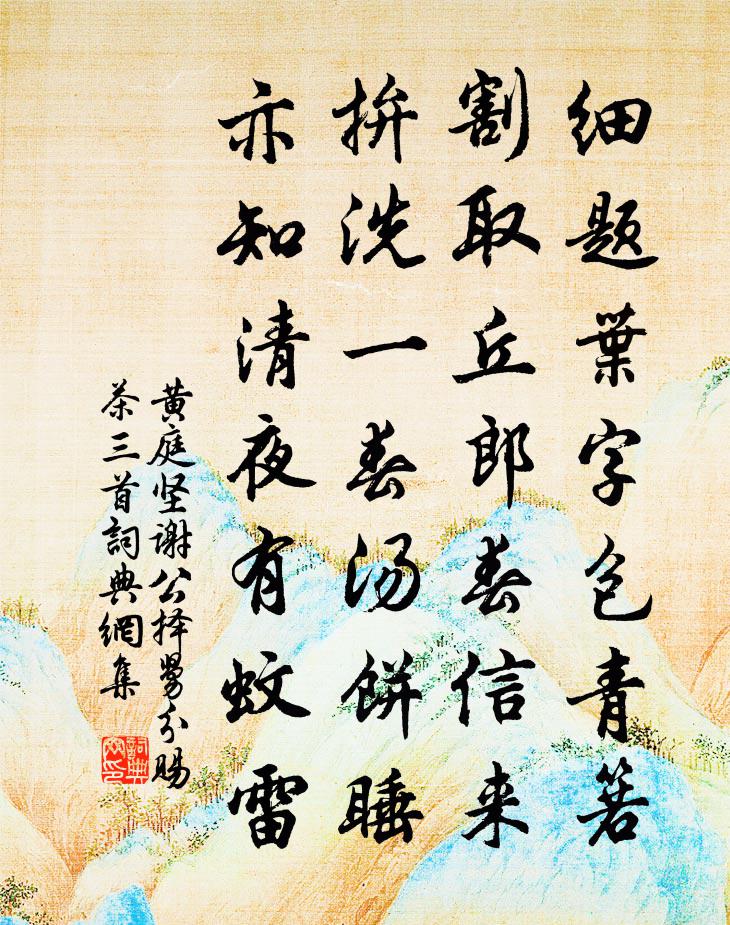 细题葉字包青箬
割取丘郎春信来
拚洗一春汤餅睡
亦知清夜有蚊雷
黄庭坚谢公择舅分賜
茶三首詞典網集
詞典网印